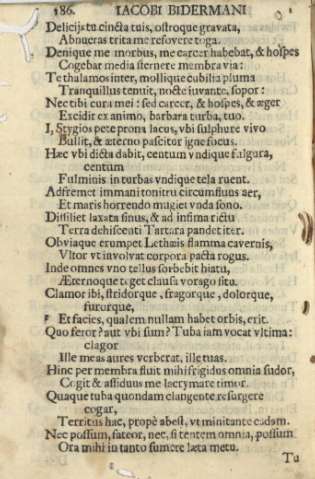 186. IACOBI BIDERMANI
Delicijs tu cincta tuis, ostroque gravata,
Abnueras trita me refovere toga.
Denique me morbus, me carcer habebat, & hospes
Cogebar media sternere membra via:
Te thalamos inter, mollique cubilia pluma
Tranquillus tenuit, nocte iuvante, sopor:
Nec tibi cura mei: sed carcer, & hospes, & æger
Excidit ex animo, barbara turba, tuo.
I, Stygios pete prona lacus, vbi sulphure vivo
Bullit, & æterno pascitor igne focus.
Hæc vbi dicta dabit, centum vndique fulgura,
centum
Fulminis in turbas vndique tela ruent.
Adfremet immani tonitru circumfluus aer,
Et maris horrendo mugiet vnda sono.
Dissiliet laxata sinus, & ad infima rictu
Terra dehiscenti Tartara pandet iter.
Obviaque erumpet Lethæis flamma cavernis,
Vltor vt involvat corpora pacta rogus.
Inde omnes vno tellus sorbebit hiatu,
Æternoque teget clausa vorago situ.
Clamor ibi, stridorque, fragorque, dolorque,
furorque,
Et facies, qualem nullam habet orbis, erit.
Quo feror? aut vbi sum? Tuba iam vocat vltima:
clagor
Ille meas aures verberat, ille tuas.
Hinc per membra fluit mihi frigidus omnia sudor,
Cogit & assiduus me lacrymare timor.
Quaque tuba quondam clangente resurgere
cogar,
Territus hac, propè abest, vt minitante cadam.
Nec possum, fateor, nec, si tentem omnia, possum
Ora mihi in tanto sumere læta metu.
Tu